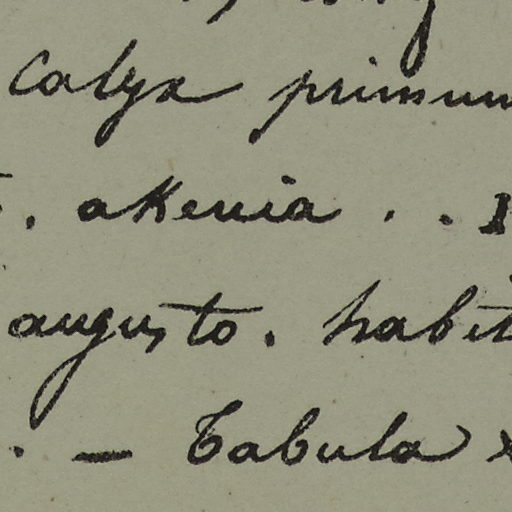 Calyx primum
. akenia . .
augusto. habit
. — Tabula